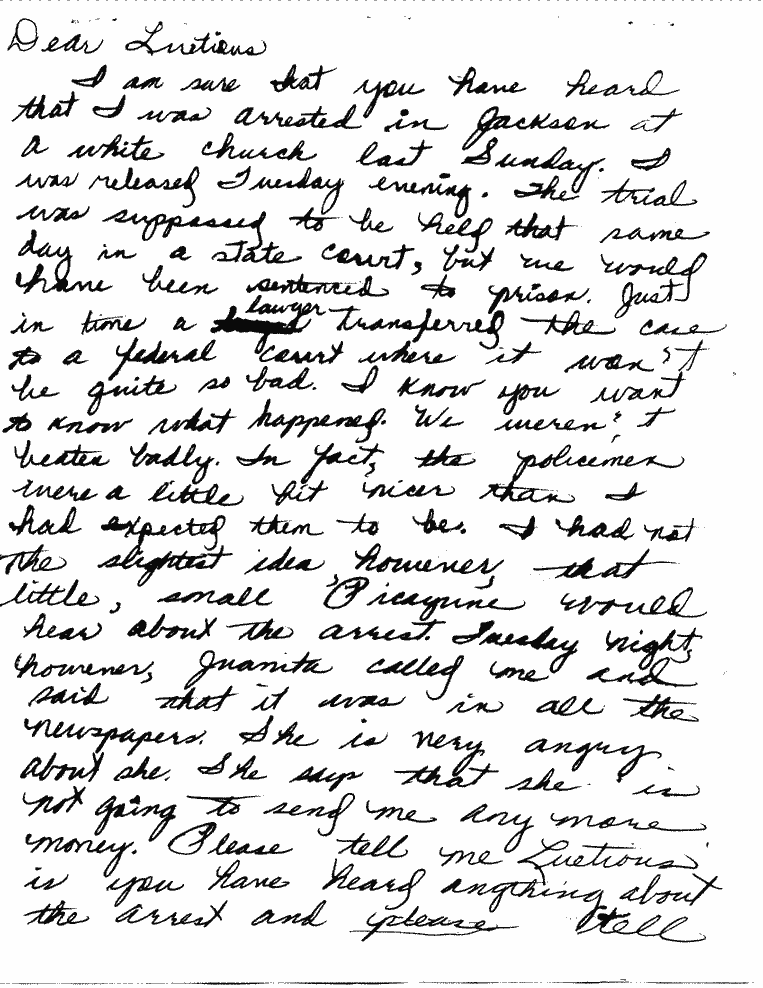 Dear Luetious
I am sure that you have heard
that I was arrested in Jackson at
a white church last Sunday. I
was released Tuesday evening. The trial
was suppossed to be held that same
day in a state court, but we would
have been sentenced to prison. Just
in time a lawyer transferred the case
to a federal court where it won't
be quite so bad. I know you want
to know what happened. We weren't
beaten badly. In fact, the policemen
were a little bit nicer than I
had expected them to be. I had not
the slightest idea, however, that
little, small Picayune would
hear about the arrest. Tuesday night,
however, Juanita called me and
said that it was in all the
newspapers. She is very angry
about she. She says that she is
not going to send me any more
money. Please tell me Luetious
is you have heard anything about
the arrest and please tell